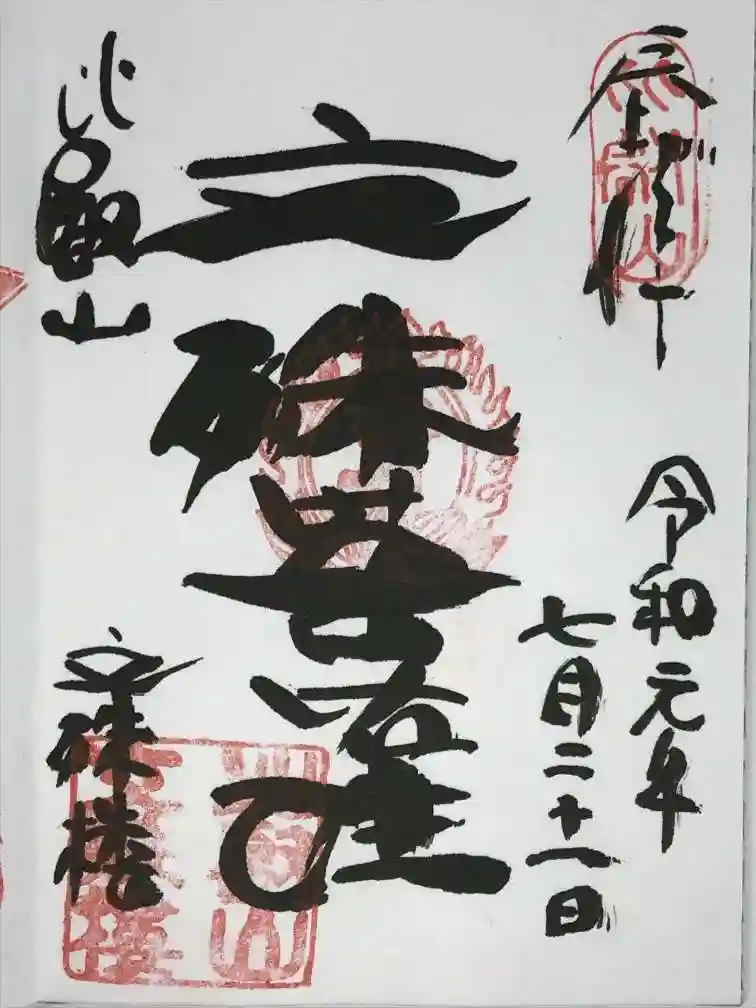 令和元年
七月二十一日
文殊菩薩
比叡山
文殊楼